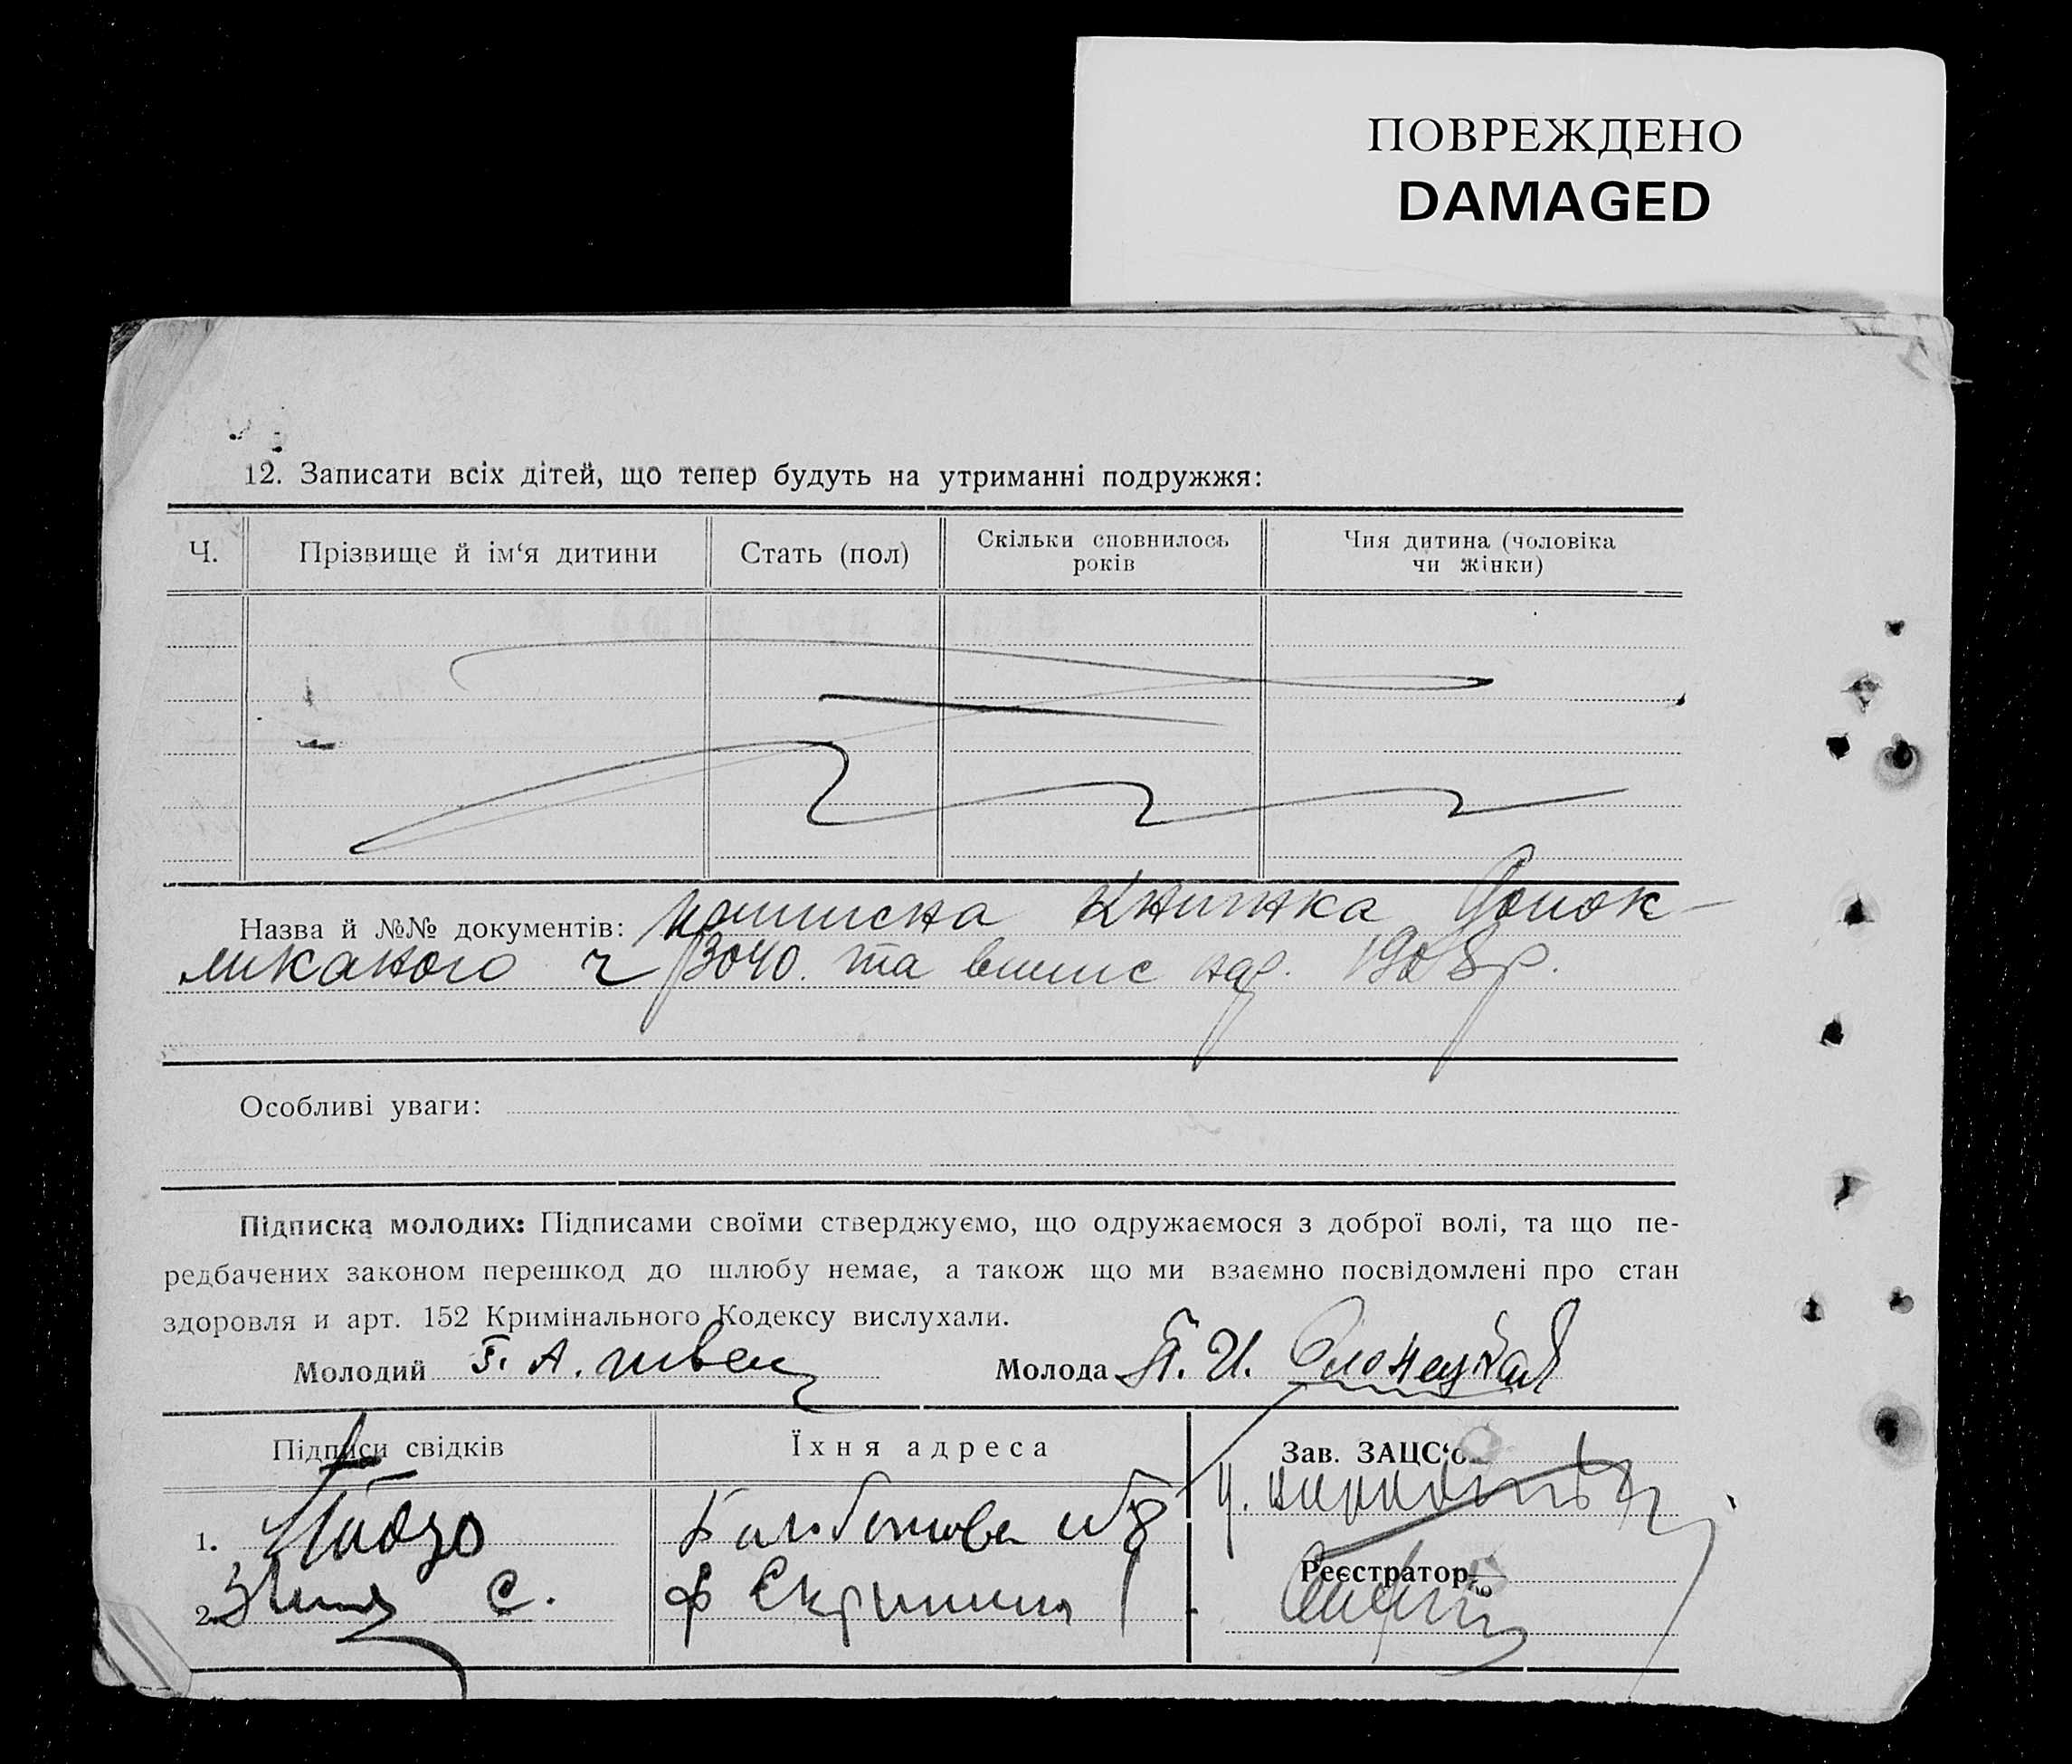 ПОВРЕЖДЕНО
DAMAGED
12. Записати всіх дітей, що тепер будуть на утриманні подружжя:
Ч. Прізвище й ім‘я дитини Стать (пол) Скільки сповнилось років Чия дитина (чоловіка чи жінки)
Назва й №№ документів: книжка
ч 3040. та випис 1908р.
Особливі уваги:
Підписка молодих: Підписами своїми стверджуємо, що одружаємося з доброї волі, та що пе-
редбачених законом перешкод до шлюбу немає, а також що ми взаємно посвідомлені про стан
здоровля и арт. 152 Кримінального Кодексу вислухали.
Молодий Г. А. Швец Молода П. И. Слонецкая
Підписи свідків Їхня адреса Зав. ЗАЦС‘о
1.
Реєстратор
2. С.